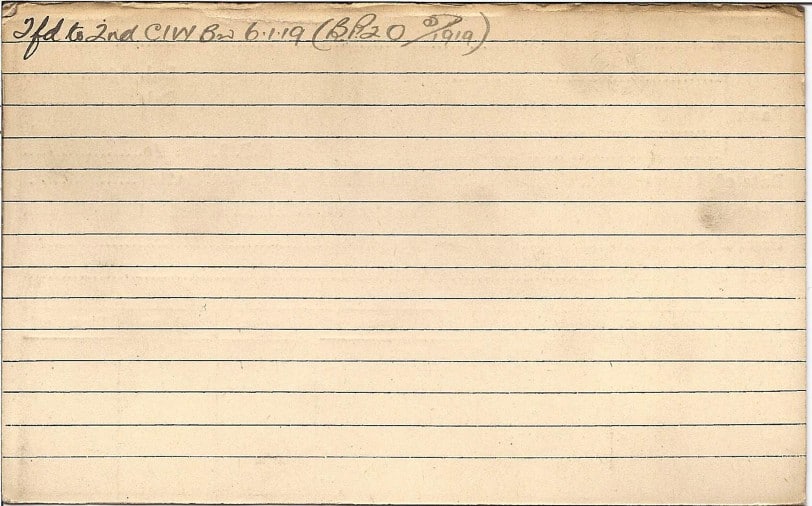 Tfd to 2nd CIW Bn 6.1.19 (B.P.2 O 5/1919)